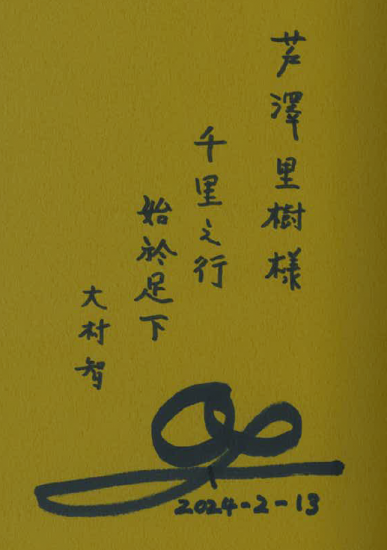 芦澤里樹様
千里之行
始於足下
大村智
2024-2-13